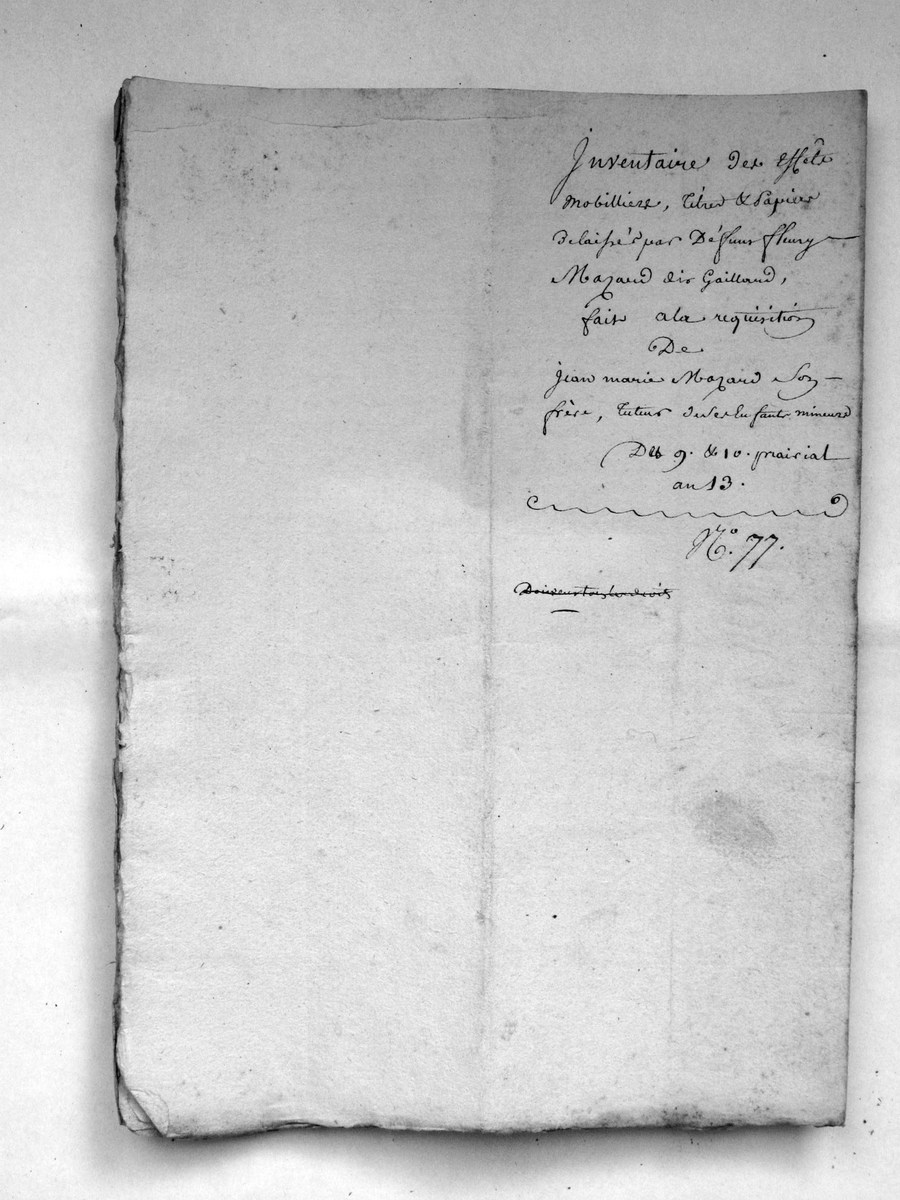 Inventaire des effêts
mobilliers, titres & Papiers
delaissés par Défunt fleury
Mazard dit Gaillard,
fait a la requisition
De
jean marie Mazard son
frère, tuteur de ses Enfants mineurs
Des 9. & 10. prairial
an 13.
N.º 77.
Doivent tous les droits